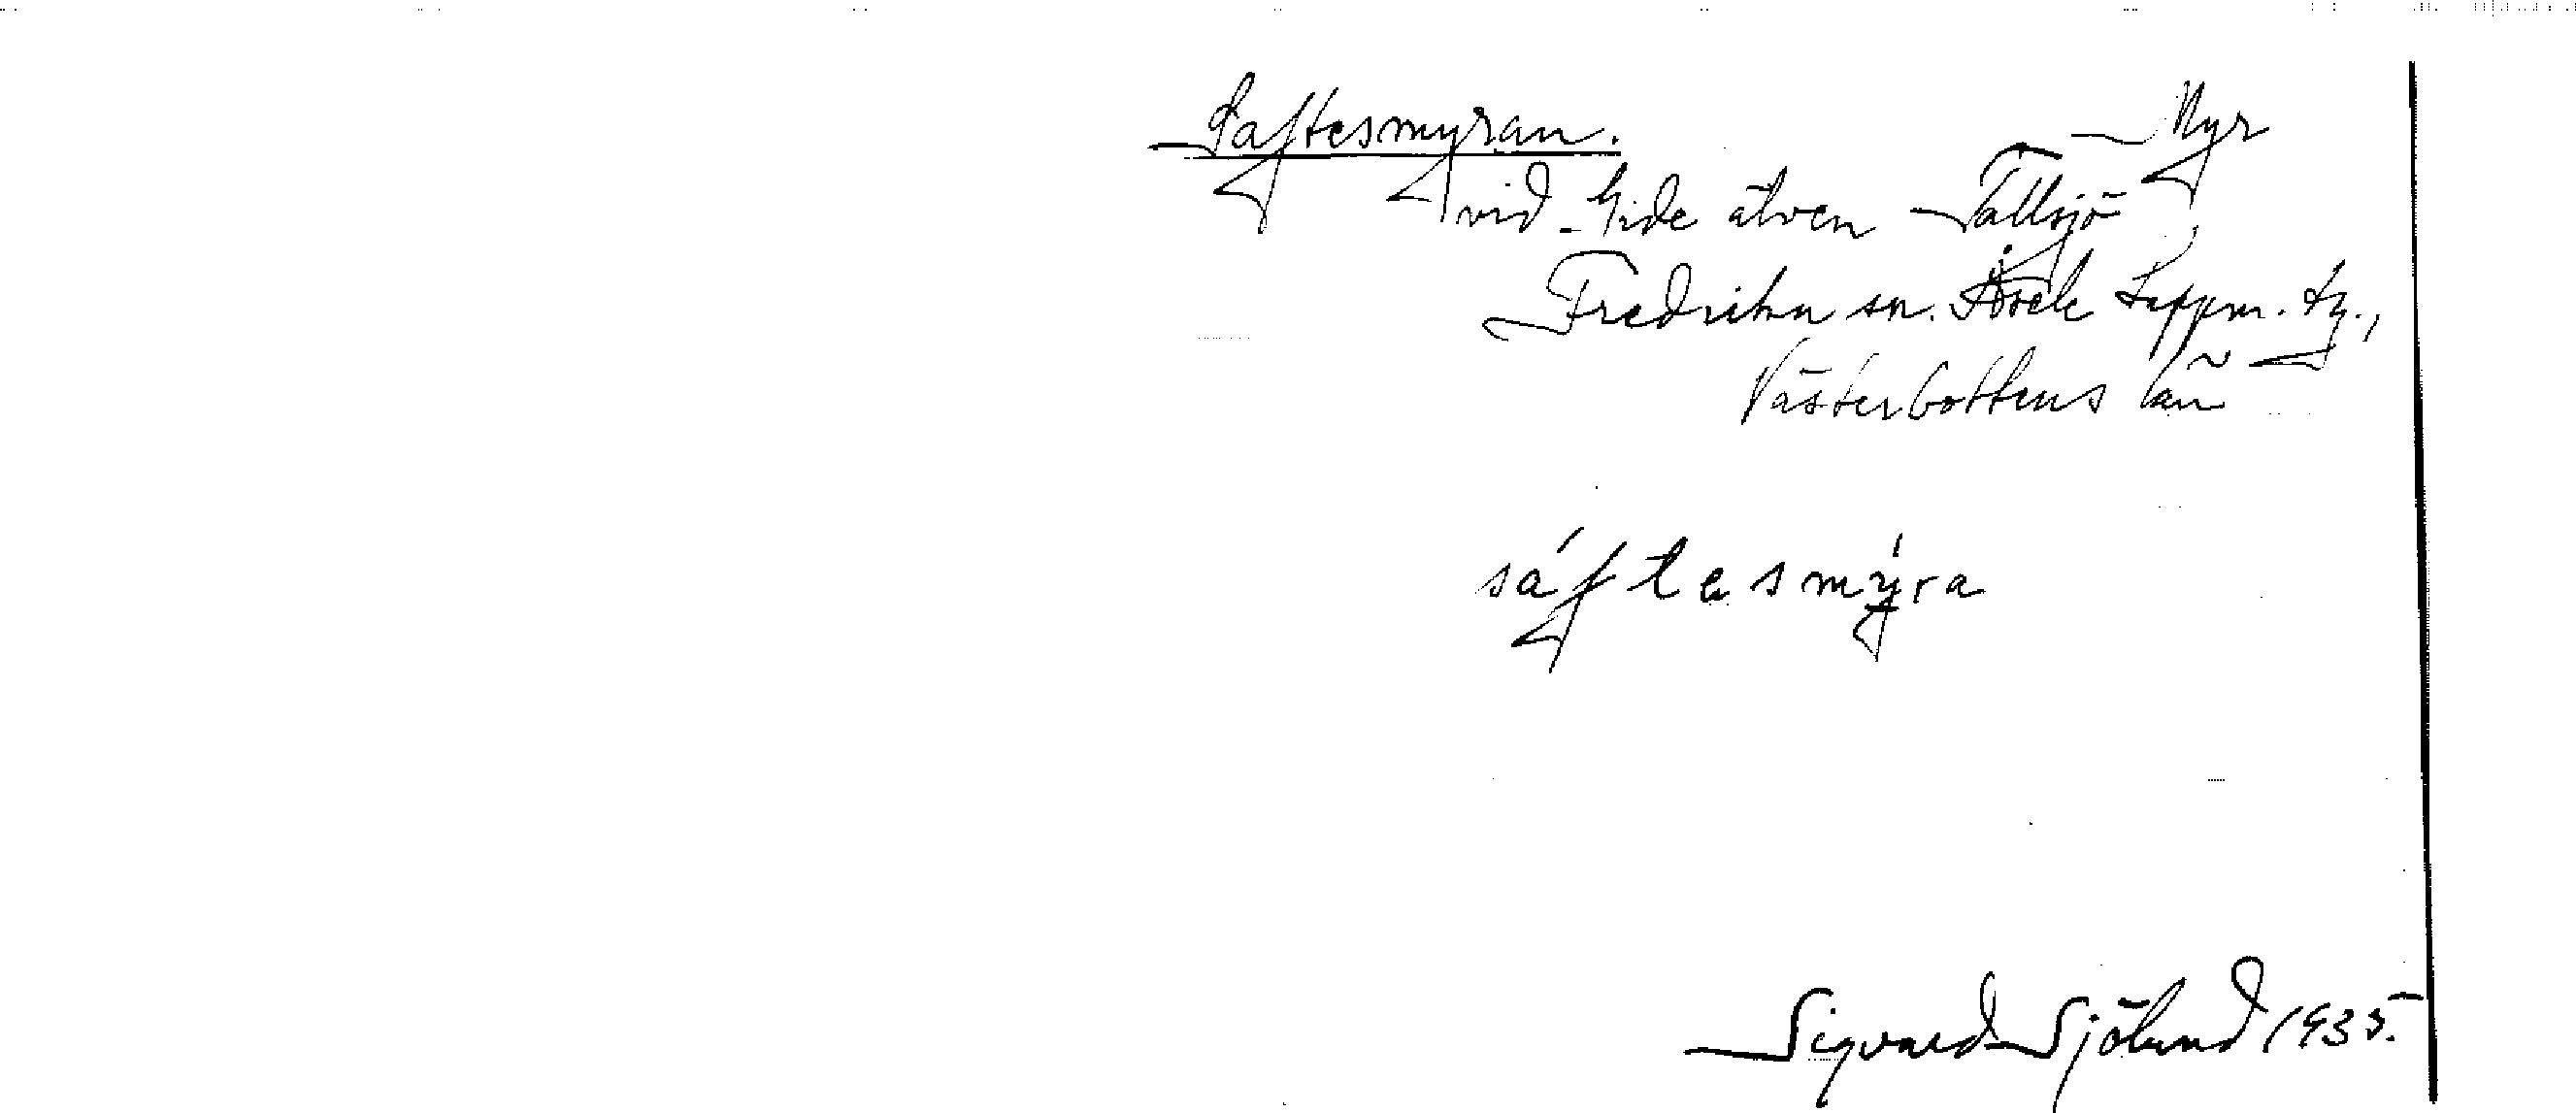 Saftesmyran. Myr
vid Gide älven Tallsjö
Fredrika sn. Åsele Lappm. tg.,
Västerbottens län
sáftesmýra
Sigvard Sjölund 1935.